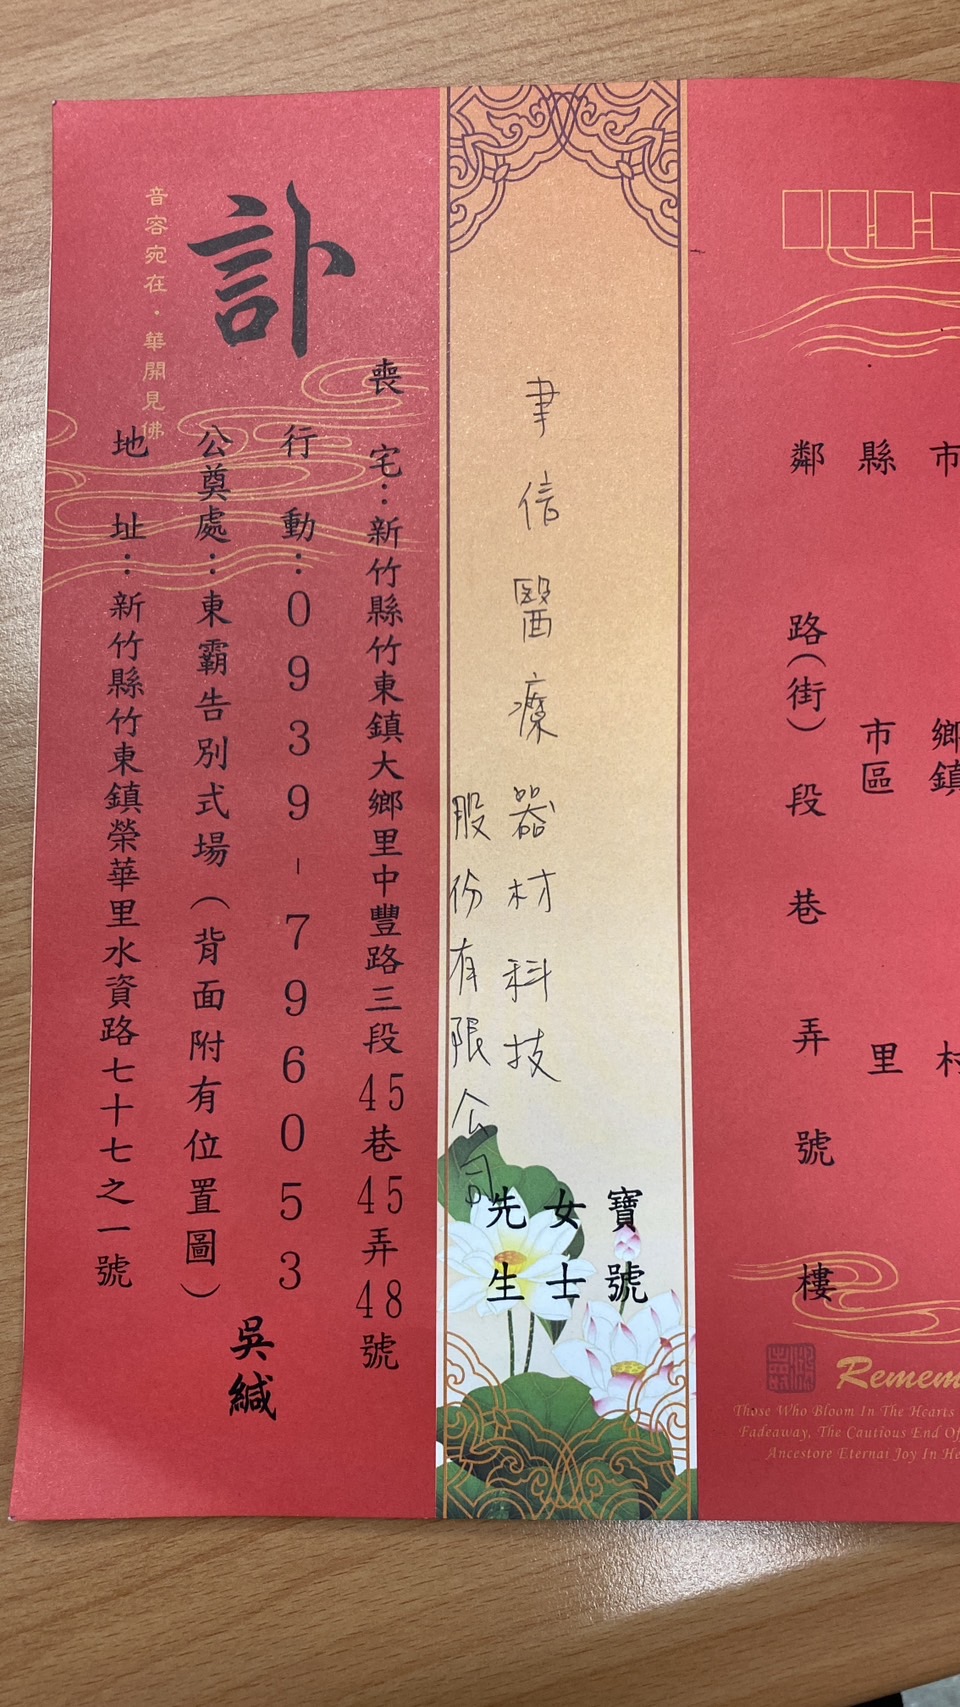 市
鄉鎮
村
縣
市區
里
鄰
路(街)
段
巷
弄
號
樓
聿信醫療器材科技
股份有限公司
寶號
女士
先生
訃
喪宅：新竹縣竹東鎮大鄉里中豐路三段45巷45弄48號
行動：0939-796053
公奠處：東霸告別式場（背面附有位置圖）
地址：新竹縣竹東鎮榮華里水資路七十七之一號
吳緘
音容宛在・華開見佛
Those Who Bloom In The Hearts
Fadeaway, The Cautious End Of
Ancestore Eternai Joy In